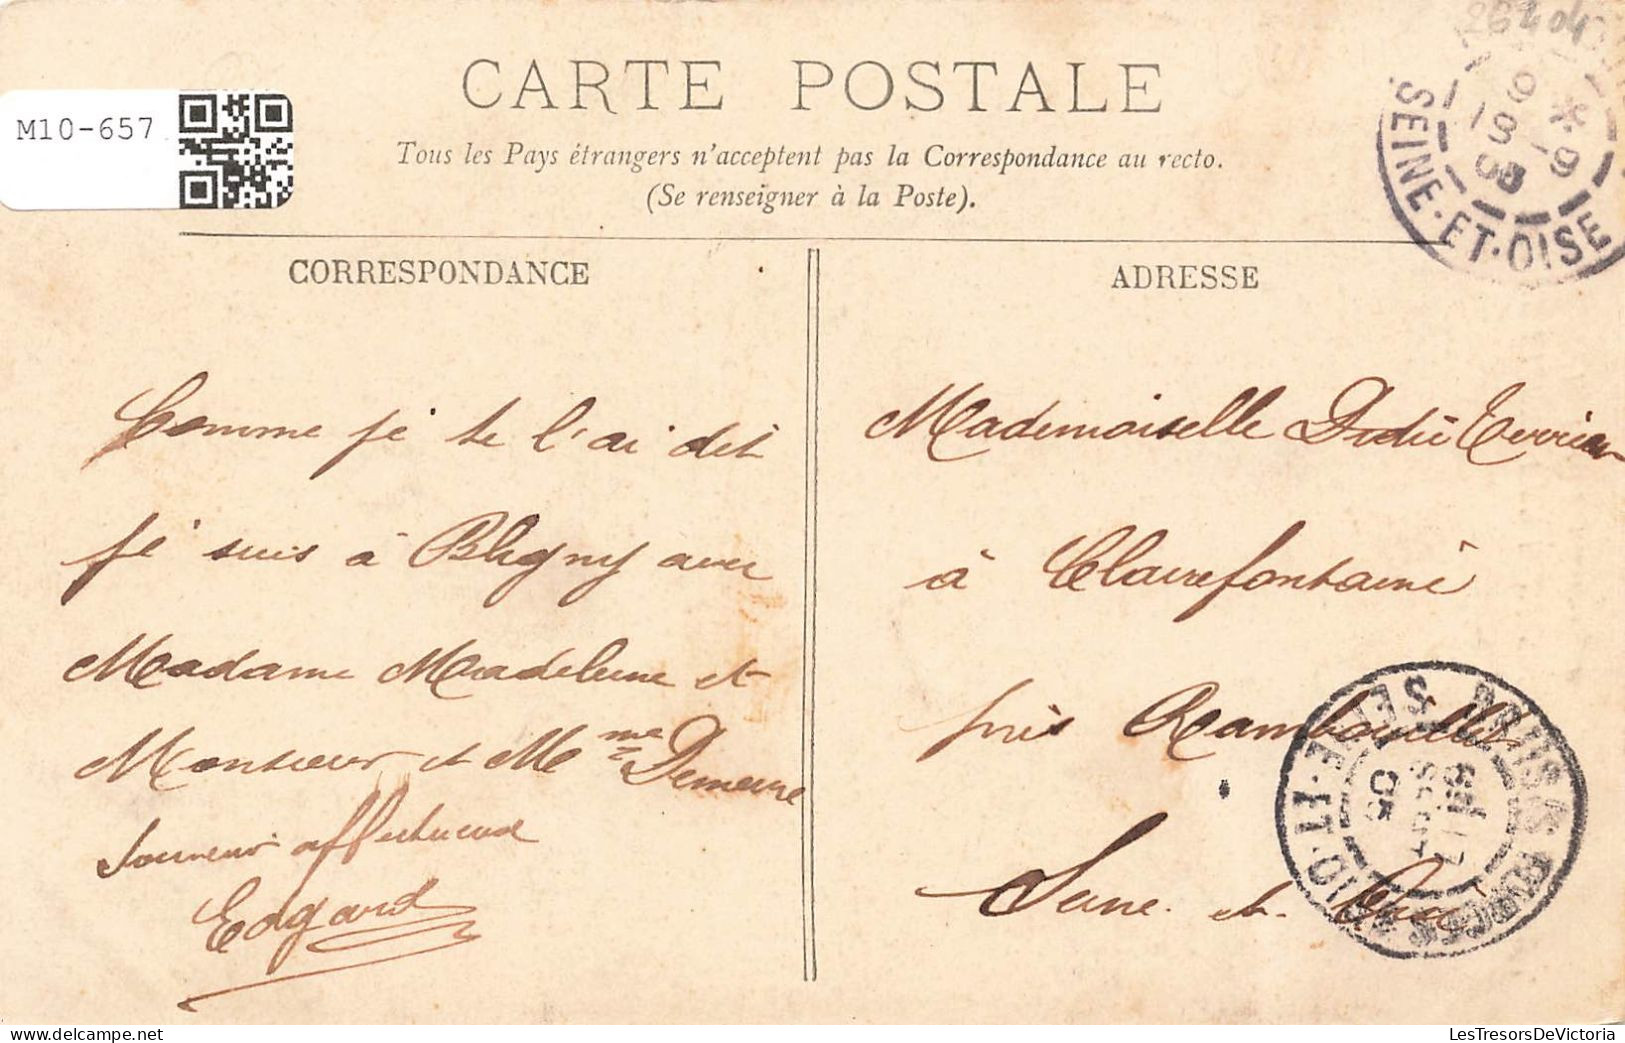 CARTE POSTALE
M10-657
Tous les Pays étrangers n'acceptent pas la Correspondance au recto.
(Se renseigner à la Poste).
SEINE-ET-OISE
CORRESPONDANCE
Comme je te l'ai dit
je suis à Bligny avec
Madame Madeleine et
Monsieur et Mme Demeure
Souvenir affectueux
Edgard
ADRESSE
Mademoiselle
à Clairefontaine
près Rambouillet
Seine et Oise
LesTresorsDeVictoria